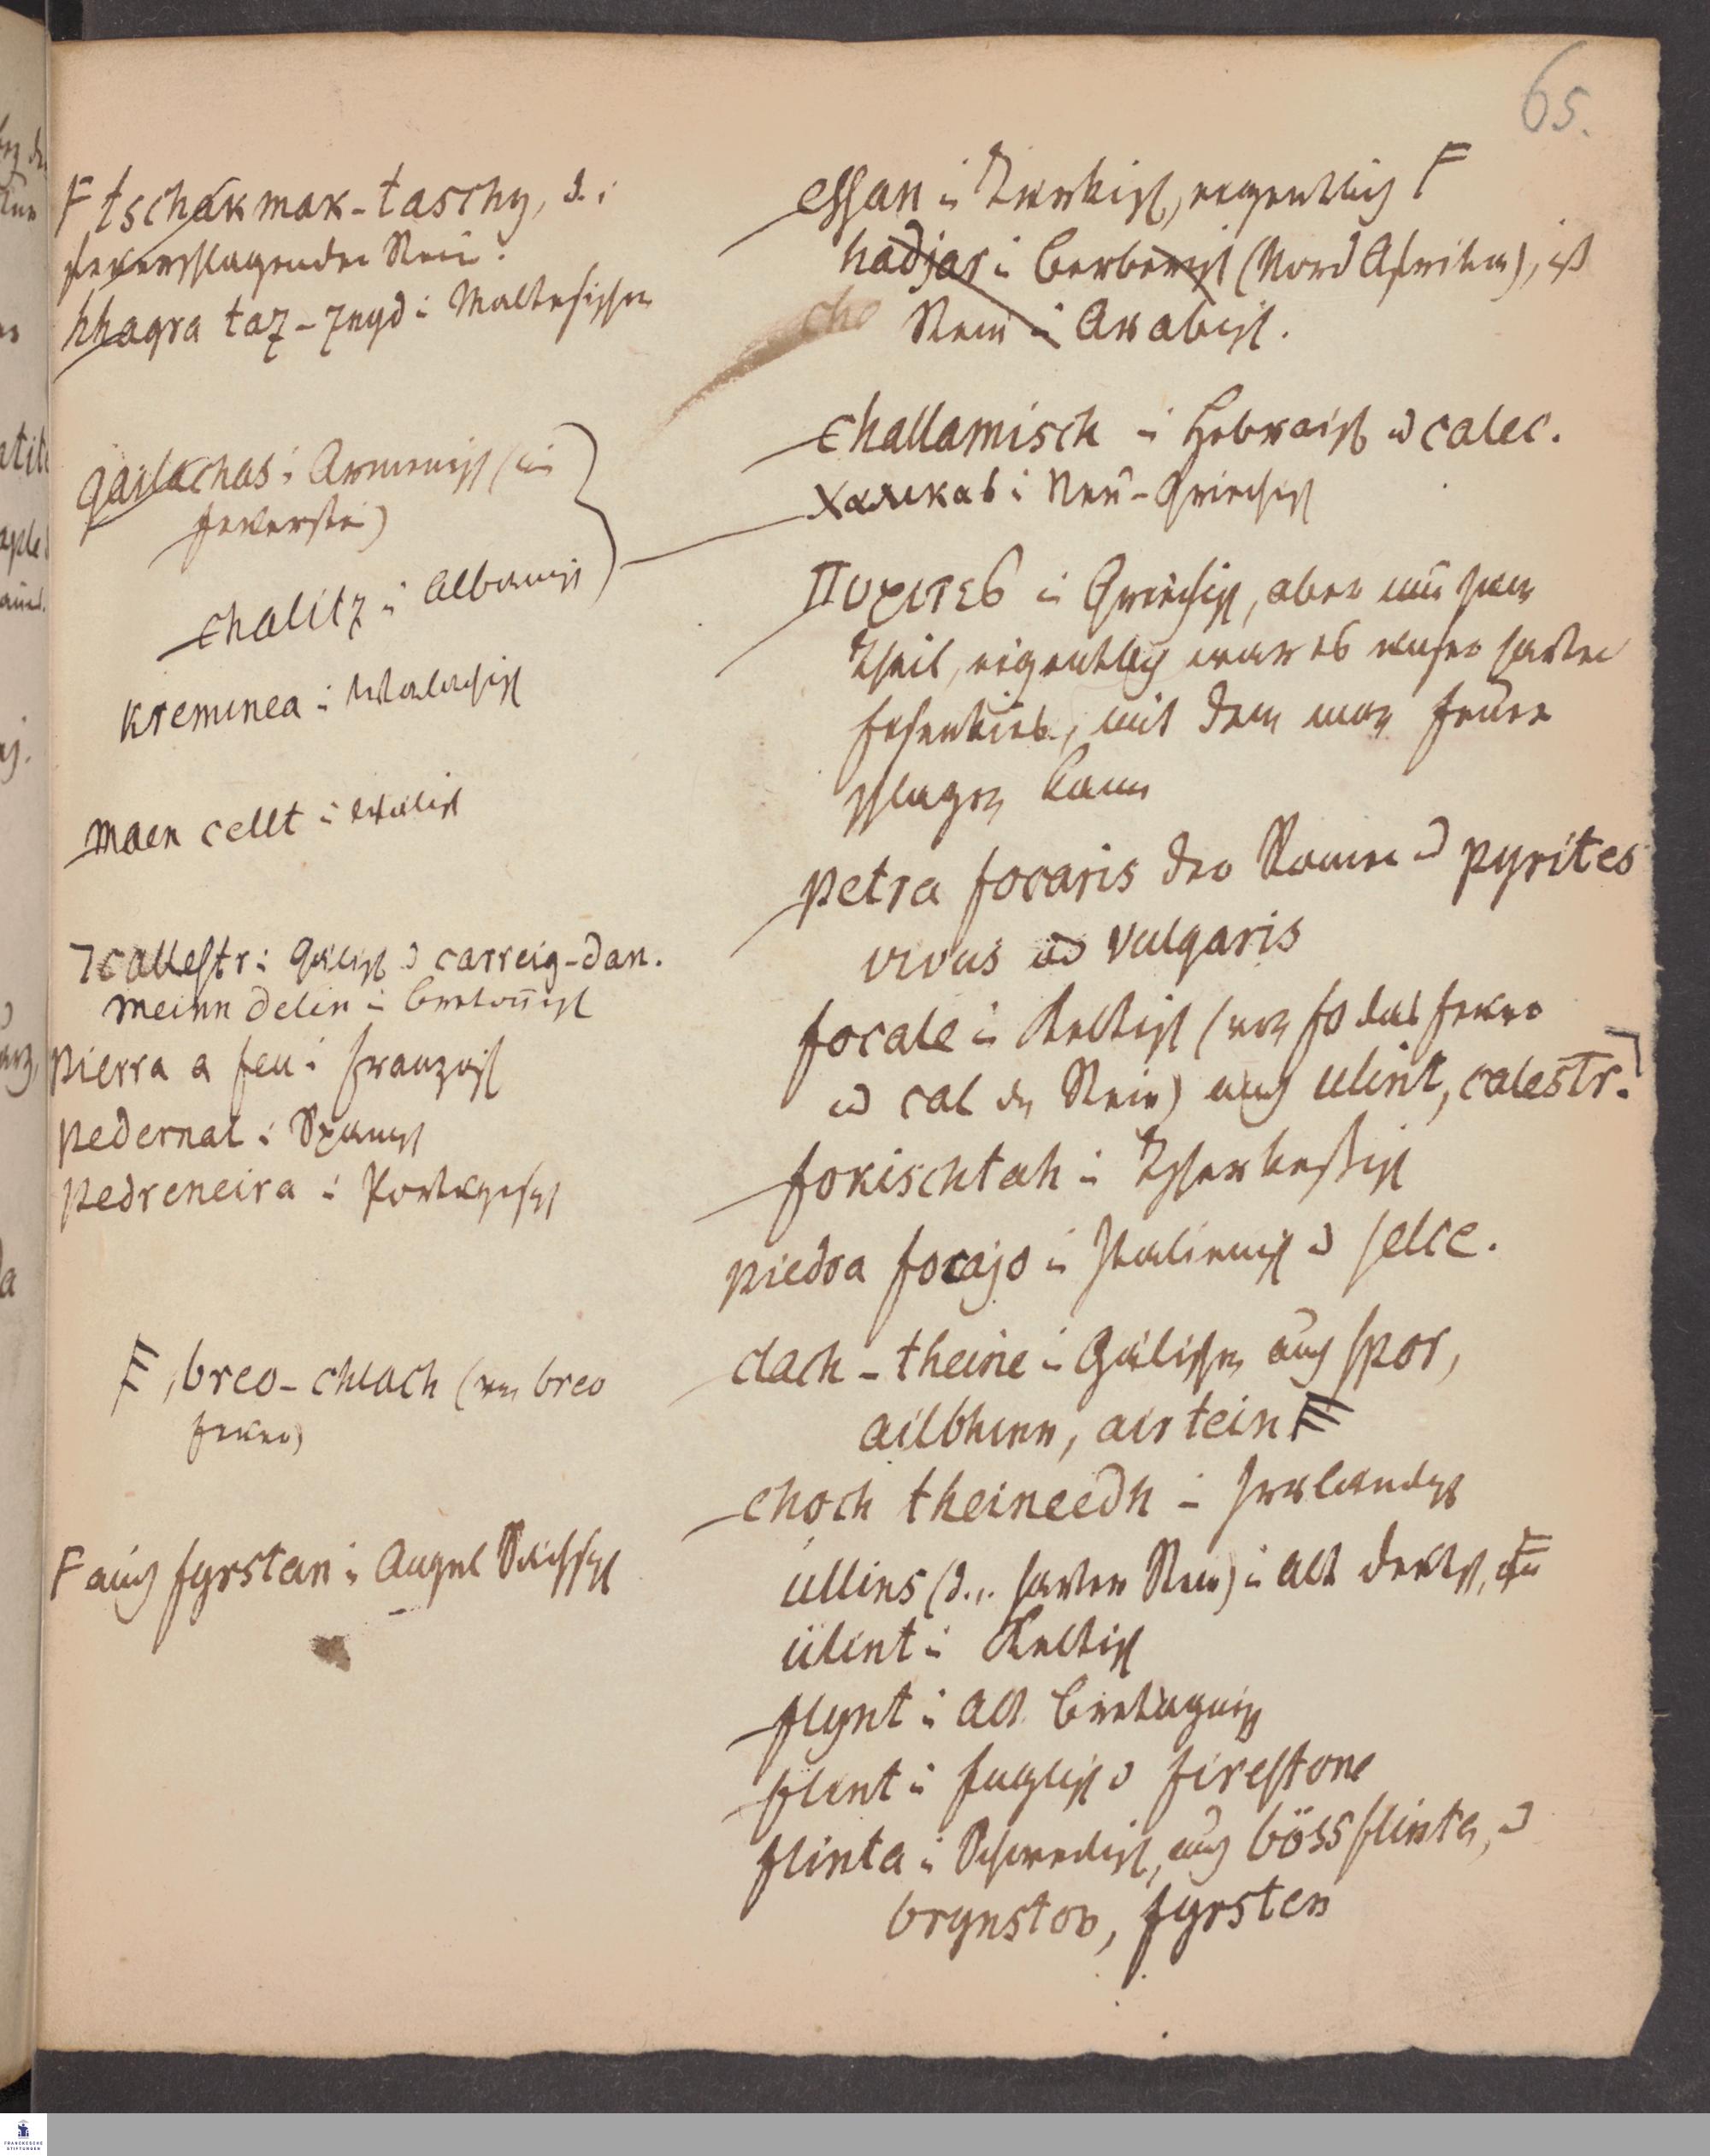 65.
F tschakmak-taschy, d. i
feuerschlagender Stein.
hhagra taz-zngd i Maltesischen
gailachas i Armenisch (ein
Feuerstein)
chalitz i Albanisch
Kreminea i Walachisch
maen cellt i Wälisch
⁊callestr i Gälisch u carreig-dan.
meinn delin i Bretonisch
pierra a feu i Französisch
pedernal i Spanisch
pedreneira i Portugisisch
F, breo-chlach (von breo
Feuer)
F auch fyrstan i Angel Sächsisch
essan i Türkisch, eigentlich F
hadjar i Berberisch (Nord Afrika), ist
Stein i Arabisch.
challamisch i Hebräisch u calec.
χαλικας i Neu-Griechisch
Πυριτες i Griechisch, aber nur zum
Theil, eigentlich war es unser harter
Eisenkies, mit dem man Feuer
schlagen kann
petra focaris der Römer u pyrites
vivus u vulgaris
focale i Keltisch (von fo das Feuer
u cal der Stein) auch ulint, calestr.⁊
fokischtah i Tscherkessisch
piedra focajo i Italienisch u selce.
clach-theine i Gälischen auch spor,
ailbhinn, airtein F
choch theineedh i Irrländisch
ullins (d. i. harter Stein) i alt deutsch,
ulint i Keltisch
flynt i alt Bretagnisch
flint i Englisch u firestone
flinta i Schwedisch, auch bössflinta, u
brynsten, fyrsten
FRANCKESCHE
STIFTUNGEN